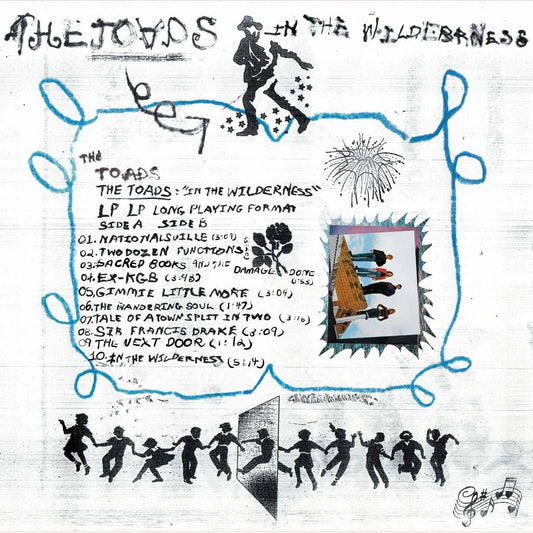 THE TOADS IN THE WILDERNESS
THE
TOADS
THE TOADS: "IN THE WILDERNESS"
LP LP LONG PLAYING FORMAT
SIDE A SIDE B
01. NATIONALSVILLE
02. TWO DOZEN FUNCTIONS
03. SACRED BOOKS AND THE DAMAGE DONE
04. EX-KGB (3:48)
05. GIMMIE LITTLE MORE (3:04)
06. THE WANDERING SOUL (1:47)
07. TALE OF A TOWN SPLIT IN TWO (3:10)
08. SIR FRANCIS DRAKE (3:09)
09 THE NEXT DOOR (1:12)
10. IN THE WILDERNESS (5:14)